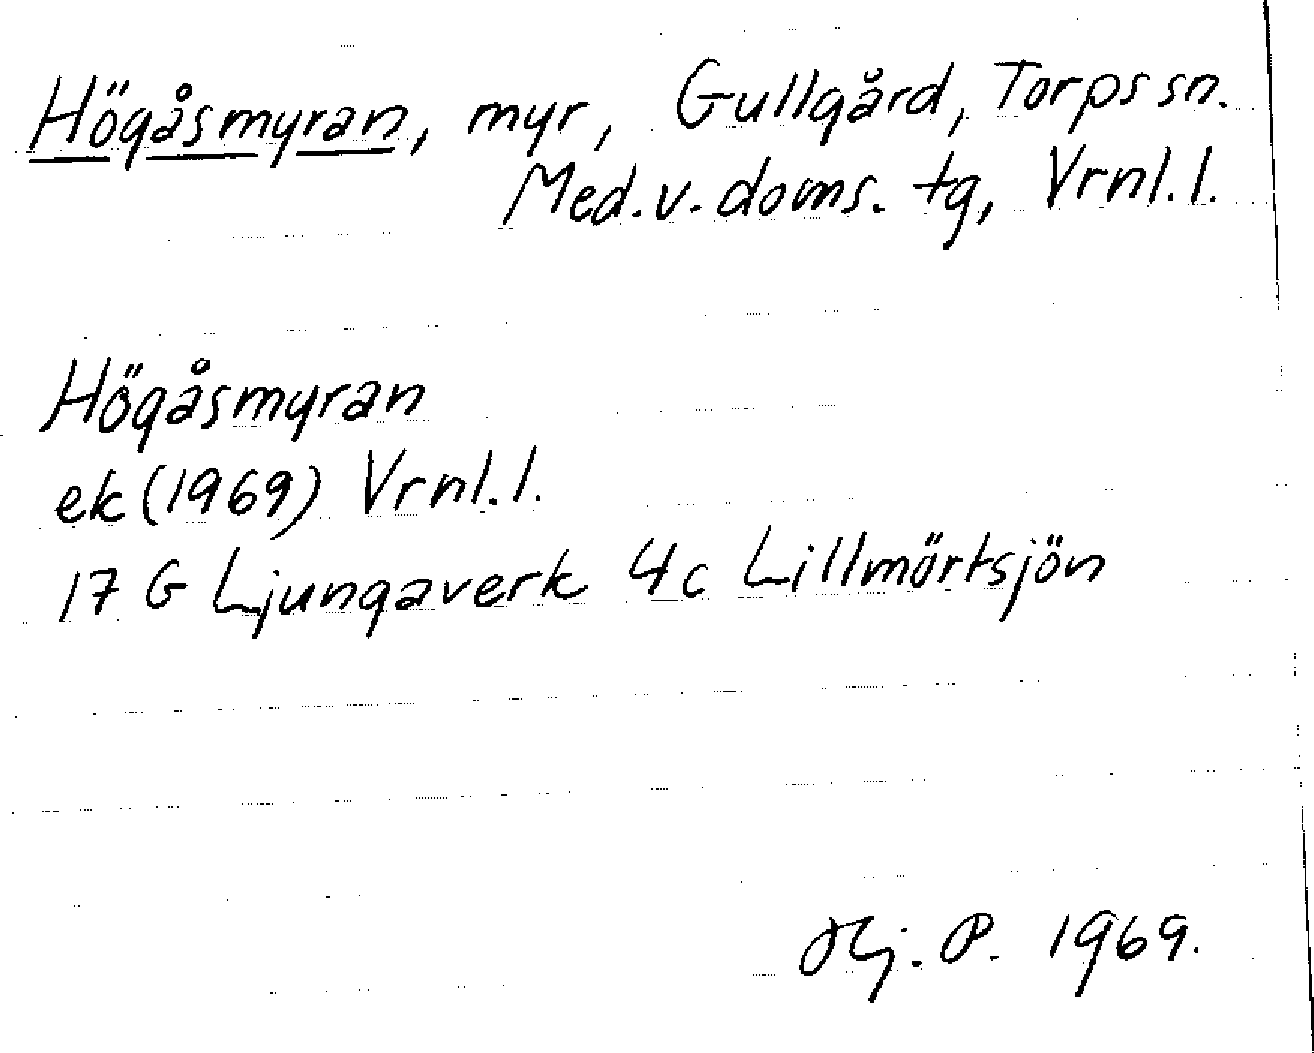 Högåsmyran, myr, Gullgård, Torps sn.
Med. v. doms. tg, Vrnl. l.
Högåsmyran
ek (1969) Vrnl. l.
17 G Ljungaverk 4c Lillmörtsjön
Hj. P. 1969.